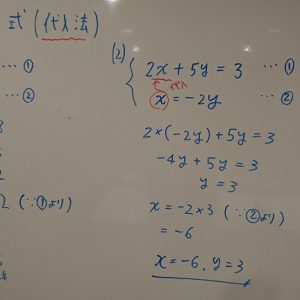 式(代入法)
… ①
… ②
2 (∵①より)
(2)
2x + 5y = 3 … ①
代入
x = -2y … ②
2×(-2y) + 5y = 3
-4y + 5y = 3
y = 3
x = -2×3 (∵②より)
= -6
x = -6, y = 3